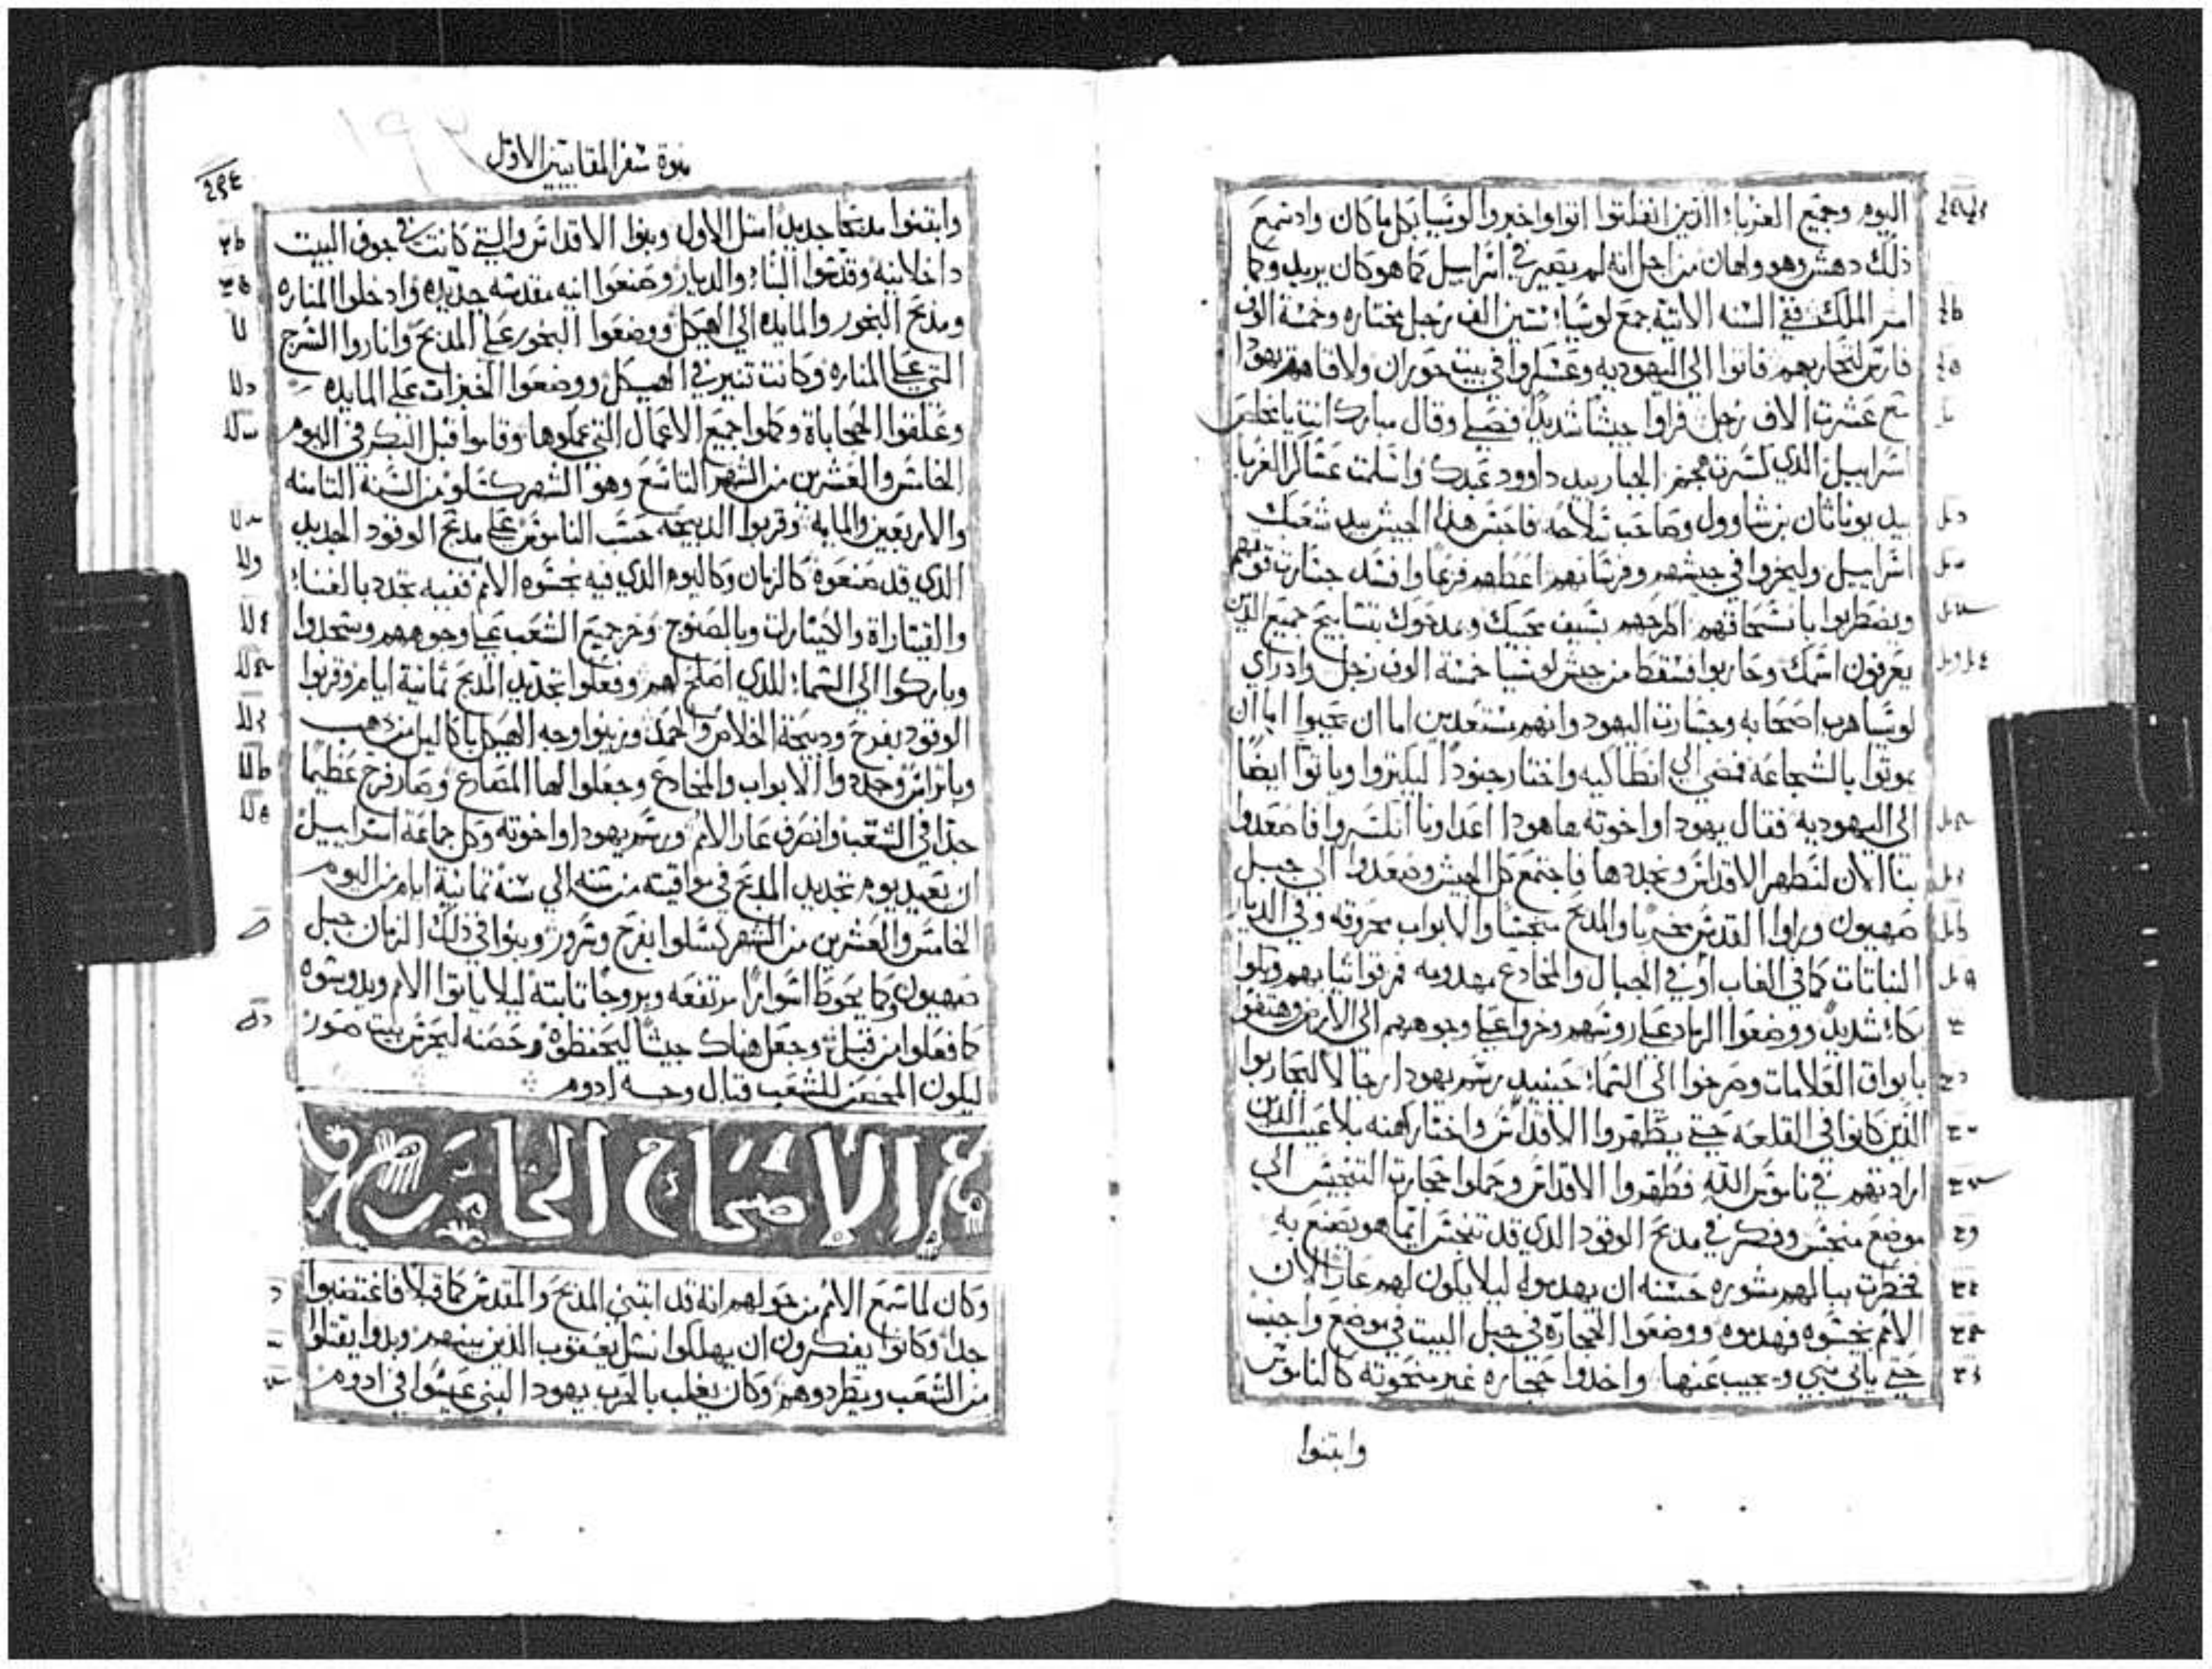 اليوم وجميع الغرباء الذين انفلتوا اتوا واخبروا لوسيا بكل ما كان واد سمع
ذلك دهش وهو ولهان من اجل انه لم يصير في اسراييل كما هو كان يريد وكما
امر الملك ففي السنه الاتيه جمع لوسيا ستين الف رجل مختاره وخمسة الوف
فارس لتحاربهم فاتوا الي اليهوديه وعسكروا في بيت حوران ولاقاهم يهودا
مع عشرت الاف رجل فراوا جيشا شديدا فصلي وقال مبارك انت يا مخلص
اسراييل الذي كسرت هجم الجبار بيد داوود عبدك واسلمت عسكر الغربا
بيد يوناثان بن شاوول وصاحب سلاحه فاحبس هذا الجيش بيد شعبك
اسراييل وليخزوا في جيشهم وفرسانهم اعطهم فزعا وافسد جسارت قوتهم
ويضطربوا بانسحاقهم اطرحهم بسيف محبيك ويمدحوك بتسابيح جميع الذين
يعرفون اسمك وحاربوا فسقط من جيش لوسيا خمسة الوف رجل واد راي
لوسيا هرب اصحابه وجسارت اليهود وانهم مستعدين اما ان يحيوا اما ان
يموتوا بالشجاعه فمضي الي انطاكيه واختار جنودا ليكتروا وياتوا ايضا
الي اليهوديه فقال يهودا واخوته ها هودا اعداونا انكسروا فاصعدوا
بنا الان لنطهر الاقداس ونجددها فاجتمع كل الجيش وصعدوا الي جبل
صهيون وراوا القدس مخربا والمدبح منجسا والابواب محروقه وفي الديار
النباتات كما في الغاب او في الجبال والمخادع مهدومه فمزقوا ثيابهم وبكوا
بكاء شديدا ووضعوا الرماد علي روسهم وخروا علي وجوههم الي الارض وهتفوا
بابواق العلامات وصرخوا الي السماء حينيد رسم يهودا رجالا ليحاربوا
الذين كانوا في القلعه حتي يطهروا الاقداس واختار كهنه بلا عيب الذين
ارادتهم في ناموس الله فطهروا الاقداس وحملوا حجارت التنجيس الي
موضع منجس وفكر في مدبح الوقود الذي قد تنجس ايما هو يصنع به
فخطرت ببالهم مشوره حسنه ان يهدموه ليلا يكون لهم عارا لان
الامم نجسوه فهدموه ووضعوا الحجارة في جبل البيت في موضع واجب
حتي ياتي نبي ويجيب عنها واخدوا حجاره غير منحوته كالناموس
وابتنوا
نبوة سفر المقابيين الاول
٢٩٤
وابتنوا مدبحا جديدا مثل الاول وبنوا الاقداس والتي كانت في جوف البيت
داخلانيه وقدسوا البناء والديار وصنعوا انيه مقدسه جديده وادخلوا المناره
ومدبح البخور والمايده الي الهيكل ووضعوا البخور علي المدبح واناروا السرج
التي علي المناره وكانت تنير في الهيكل ووضعوا الخبزات علي المايده
وعلقوا الحجاباة وكملوا جميع الاعمال التي عملوها وقاموا قبل البكر في اليوم
الخامس والعشرين من الشهر التاسع وهو الشهر كسلو من السنة الثامنه
والاربعين والمايه وقربوا الدبيحه حسب الناموس علي مدبح الوقود الجديد
الذي قد صنعوه كالزمان وكاليوم الذي فيه نجسوه الامم ففيه تجدد بالغناء
والقيتاراة والكينارات وبالصنوج وخر جميع الشعب علي وجوههم وسجدوا
وباركوا الي السماء للذي اصلح لهم وفعلوا تجديد المدبح ثمانية ايام وقربوا
الوقود بفرح ودبيحة الخلاص والحمد وزينوا وجه الهيكل باكاليل من دهب
وباتراس وجددوا الابواب والمخادع وجعلوا لها المصارع وصار فرح عظيما
جدا في الشعب وانصرف عار الامم ورسم يهودا واخوته وكل جماعة اسراييل
ان تعيد يوم تجديد المدبح في مواقيته من سنه الي سنة ثمانية ايام من اليوم
الخامس والعشرين من الشهر كسلوا بفرح وسرور وبنوا في ذلك الزمان جبل
صهيون وكما يحوط اسوارا مرتفعه وبروجا ثابته ليلا ياتوا الامم ويدوسوه
كما فعلوا من قبل وجعل هناك جيشا ليحفظوه وحصنه ليحرس بيت صور
ليكون المحصن للشعب قبال وجه ادوم
الاصحاح الخامس
وكان لما سمع الامم من حولهم انه قد ابتني المدبح والمقدس كما قبلا فاغتضبوا
جدا وكانوا يفكرون ان يهلكوا نسل يعقوب الذين بينهم وبدوا يقتلوا
من الشعب ويطردوهم وكان يغلب بالحرب يهودا لبني عيسوا في ادوم